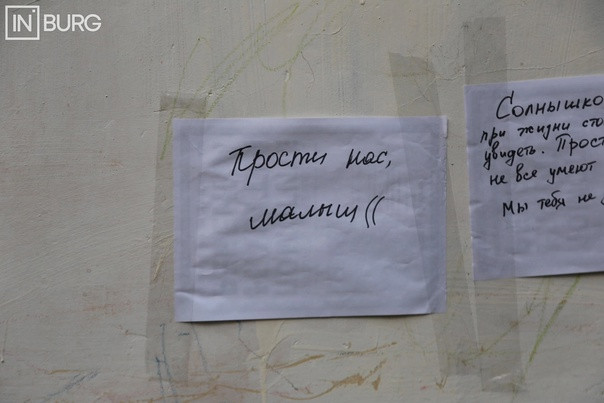 IN BURG
Прости нас,
малыш((
Солнышко
при жизни
увидеть. Прост
не все умеют
Мы тебя не